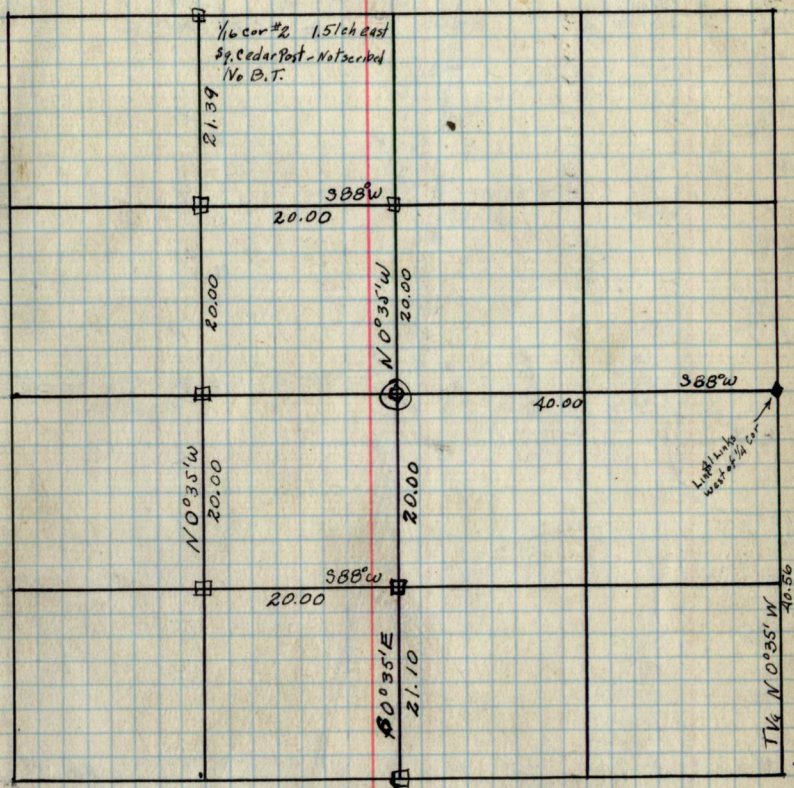 1/16 cor #2 1.51ch east
Sq. Cedar Post - Not scribed
No B.T.
21.39
S88°W
20.00
20.00
N0°35'W
20.00
S88°W
40.00
Links
west of 1/4 cor
N0°35'W
20.00
20.00
S88°W
20.00
0°35'E
21.10
N0°35'W
40.56